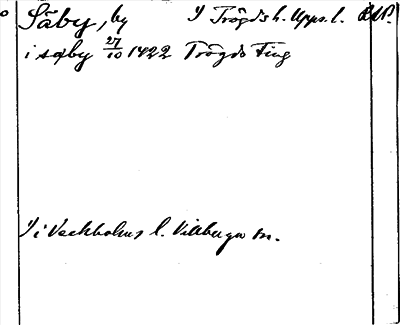 Säby, by I Trögds h. Upps. l.
i säby 27/10 1422 Trögds Ting
I i Veckholms l. Villberga sn.